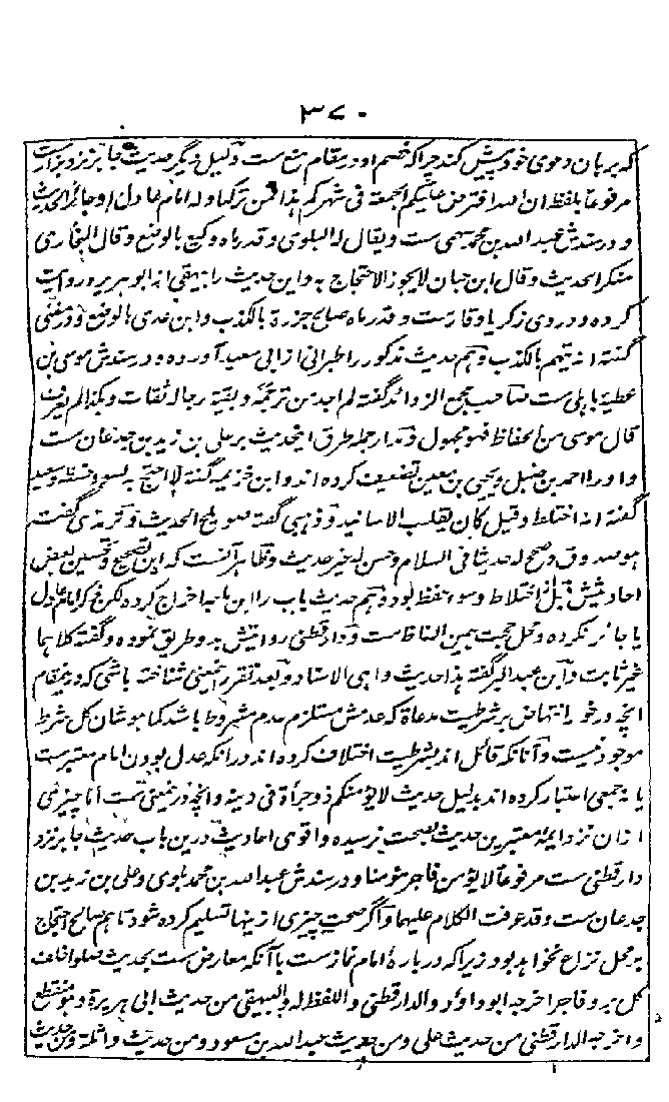 ٣٧٠
که بر بان دعوی خود پیش کند چراکه خصم او در مقام منع ست دلیل دیگر حدیث جابر نزد بزارست
مرفوعا بلفظ ان الله افترض علیکم الجمعة فی شهرکم هذا فمن ترکها وله امام عادل او جائر الحدیث
و در سندش عبدالله بن محمد سهمی ست و یقال له البلوی و قد رماه وکیع بالوضع وقال البخاری
منکر الحدیث وقال ابن حبان لایجوز الاحتجاج به و این حدیث را بیهقی از ابو هریره روایت
کرده و در وی زکریا وقارست و قد رماه صالح جزرة بالکذب و ابن عدی بالوضع و در مغنی
گفته انه یتهم بالکذب و هم حدیث مذکور را طبرانی از ابی سعید آورده و در سندش موسی بن
عطیه باهلی ست صاحب مجمع الزوائد گفته لم اجد من ترجمه و بقیة رجاله ثقات و هکذا لم یعرف
قال موسی من الحفاظ فهو مجهول و مدار جمله طرق این حدیث بر علی بن زید بن جدعان ست
و او را احمد بن حنبل و یحیی بن معین تضعیف کرده اند و ابن خزیمه گفته لا احتج به لسوء حفظه و سعید
گفته انه اختلط و قیل کان یقلب الاسانید و ذهبی گفته هو صالح الحدیث و ترمذی گفت
هو صدوق و صحح له حدیثا فی السلام و حسن له غیر حدیث و ظاهر آنست که این تصحیح و تحسین بعض
احادیثش قبل از اختلاط و سوء حفظ بود و هم حدیث باب را ابن ماجه اخراج کرده لکن ذکر امام عادل
یا جائر نکرده و محل حجت همین الفاظ ست و دارقطنی روایتش بدو طریق نموده و گفته کلاهما
غیر ثابت و ابن عبدالبر گفته هذا حدیث واهی الاسناد و بعد تقرر اینمعنی شناخته باشی که درینمقام
انچه در خور انتهاض بر شرطیت مدعاة که عدمش مستلزم عدم مشروط باشد کما هو شان کل شرط
موجود نیست و آنانکه قائل اند بشرطیت اختلاف کرده اند در انکه عدل بودن امام معتبرست
یا نه جمعی اعتبار کرده اند بدلیل حدیث لایؤمنکم ذو جرأة فی دینه و انچه درینمعنی ست اما چیزی
ازان نزد ایمه معتبرین حدیث بصحت نرسیده و اقوی احادیث درین باب حدیث جابر نزد
دارقطنی ست مرفوعا لایؤمن فاجر مؤمنا و در سندش عبدالله بن محمد بلوی و علی بن زید بن
جدعان ست و قد عرفت الکلام علیهما و اگر صحت چیزی ازینها تسلیم کرده شود تا هم صالح احتجاج
بر محل نزاع نخواهد بود زیراکه در بارهٔ امام نمازست با آنکه معارض ست بحدیث صلوا خلف
کل بر و فاجر اخرجه ابوداؤد والدارقطنی واللفظ له والبیهقی من حدیث ابی هریرة و هو منقطع
و اخرجه الدارقطنی من حدیث علی و من حدیث عبدالله بن مسعود و من حدیث واثلة و من حدیث